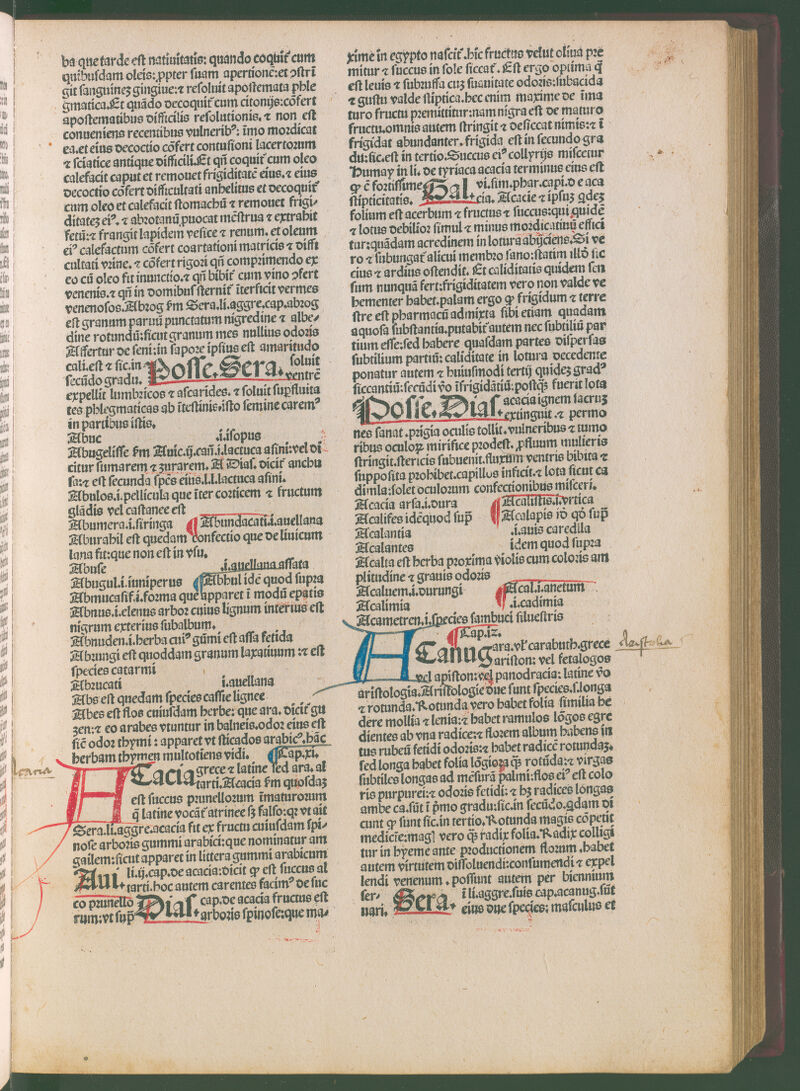 ba que tarde est natiuitatis: quando coquit̄ cum
quibusdam oleis: ꝓpter suam apertionē: et ↄstrī
git sanguinez gingiue: ⁊ resoluit apostemata phle
gmatica. Et quādo decoquit̄ cum citonijs: cōfert
apostematibus difficilis resolutionis. ⁊ non est
conueniens recentibus vulneribꝰ: īmo mordicat
ea. et eius decoctio cōfert contusioni lacertorum
⁊ sciatice antique difficili. Et qñ coquit̄ cum oleo
calefacit caput et remouet frigiditatē eius. ⁊ eius
decoctio cōfert difficultati anhelitus et decoquit̄
cum oleo et calefacit stomachū ⁊ remouet frigi⸗
ditatez eiꝰ. ⁊ abrotanū ꝓuocat mēstrua ⁊ extrabit
fetū: ⁊ frangit lapidem vesice ⁊ renum. et oleum
eiꝰ calefactum cōfert coartationi matricis ⁊ diffi
cultati vrine. ⁊ cōfert rigori qñ comprimendo ex
eo cū oleo fit inunctio. ⁊ qñ bibit̄ cum vino ↄfert
venenis. ⁊ qñ in domibus sternit̄ īterficit vermes
venenosos. Abrog s̄m Sera. li. aggre. cap. abrog
est granum paruū punctatum nigredine ⁊ albe⸗
dine rotundū: sicut granum mes nullius odoris
Affertur de seni: in sapore ipsius est amaritudo
cali. est ⁊ sic. in Posse. Sera. soluit
secūdo gradu. ventrē
expellit lumbricos ⁊ ascarides. ⁊ soluit suꝑfluita
tes phlegmaticas ab ītestinis. isto semine caremꝰ
in partibus istis.
Abuc .i. isopus
Abugelisse s̄m Auic. ij. can. i. lactuca asini: vel di
citur sumarem ⁊ zurarem. A Dias. dicit̄ anchu
sa: ⁊ est secunda sp̄es eius. l. l. lactuca asini.
Abulos. i. pellicula que īter corticem ⁊ fructum
glādis vel castanee est
Abumera. i. siringa Abundacati. i. auellana
Aburabil est quedam confectio que de liuicum
lana fit: que non est in vsu.
Abuse .i. auellana assata
Abugul. i. iuniperus Abhul idē quod supra
Abmucasif. i. forma que apparet ī modū epatis
Abnus. i. elenus arbor cuius lignum interius est
nigrum exterius subalbum.
Abnuden. i. herba cuiꝰ gūmi est assa fetida
Abrungi est quoddam granum laxatiuum: ⁊ est
species catarmi
Abrucati .i. auellana
Abs est quedam species cassie lignee
Abes est flos cuiusdam herbe: que ara. dicit̄ gu
zen: ⁊ eo arabes vtuntur in balneis. odor eius est
sic̄ odor thymi: apparet vt sticados arabicꝰ. hāc
herbam thymen multotiens vidi. Cap. xi.
Acacia grece ⁊ latine sed ara. al
tarti. Acacia s̄m quosdaz
est succus prunellorum īmaturorum
q̄ latine vocāt̄ atrinee sz falso: qꝛ vt ait
Sera. li. aggre. acacia fit ex fructu cuiusdam spi⸗
nose arboris gummi arabici: que nominatur am
gailem: sicut apparet in littera gummi arabicum
Aui. li. ij. cap. de acacia: dicit ꝙ est succus al
tarti. hoc autem carentes facimꝰ de suc
co prunello Dias. cap. de acacia fructus est
rum: vt sup̄ arboris spinose: que ma⸗
xime in egypto nascit̄. hic fructus velut oliua pre
mitur ⁊ succus in sole siccat̄. Est ergo optima q̄
est leuis ⁊ subruffa cuz suauitate odoris: subacida
⁊ gustu valde stiptica. hec enim maxime de īma
turo fructu premittitur: nam nigra est de maturo
fructu. omnis autem stringit ⁊ desiccat nimis: ⁊ ī
frigidat abundanter. frigida est in secundo gra
du: sic. est in tertio. Succus eiꝰ collyrijs miscetur
Humay in li. de tyriaca acacia terminus eius est
ꝙ ē fortissime Gal. vi. sim. phar. capi. d e aca
stipticitatis. cia. Acacie ⁊ ipsuz qdez
folium est acerbum ⁊ fructus ⁊ succus: qui quidē
⁊ lotus debilior simul ⁊ minus mordicatiuū effici
tur: quādam acredinem in lotura abijciens. Si ve
ro ⁊ subungat̄ alicui membro sano: statim illō sic
cius ⁊ ardius ostendit. Et caliditatis quidem sen
sum nunquā fert: frigiditatem vero non valde ve
hementer habet. palam ergo ꝙ frigidum ⁊ terre
stre est pharmacū admixta sibi etiam quadam
aquosa substantia. putabit̄ autem nec subtiliū par
tium esse: sed habere quasdam partes dispersas
subtilium partiū: caliditate in lotura decedente
ponatur autem ⁊ huiusmodi tertij quidez gradꝰ
siccantiū: secūdi ṽo īfrigidātiū: postq̄z fuerit lota
Posse. Dias. acacia ignem sacruz
extinguit. ⁊ permo
nes sanat. ꝓrigia oculis tollit. vulneribus ⁊ tumo
ribus oculoꝝ mirifice prodest. ꝓfluum mulieris
stringit. stericis subuenit. fluxum ventris bibita ⁊
supposita prohibet. capillos inficit. ⁊ lota sicut ca
dimla: solet oculorum confectionibus misceri.
Acacia arsa. i. dura Acalistis. i. vrtica
Acalifes idēquod sup̄ Acalapis iō qō sup̄
Acalantia .i. auis caredlla
Acalantes idem quod supra
Acalta est herba proxima violis cum coloris am
plitudine ⁊ grauis odoris
Acaluem. i. durungi Acal. i. anetum
Acalimia .i. cadimia
Acametren. i. species sambuci siluestris
Cap. iz.
Acanug ara. vl̓ carabuth. grece
ariston: vel fetalogos
vel apiston: vel panodracia: latine ṽo
aristologia. Aristologie due sunt species. s. longa
⁊ rotunda. Rotunda vero habet folia similia he
dere mollia ⁊ lenia: ⁊ habet ramulos lōgos egre
dientes ab vna radice: ⁊ florem album habens in
tus rubeū fetidi odoris: ⁊ habet radicē rotundaz.
sed longa habet folia lōgiora q̄z rotūda: ⁊ virgas
subtiles longas ad mēsurā palmi: flos eiꝰ est colo
ris purpurei: ⁊ odoris fetidi: ⁊ hz radices longas
ambe ca. sūt ī p̄mo gradu: sic. in secūdo. qdam di
cunt ꝙ sunt sic. in tertio. Rotunda magis cōpetit
medicīe: magꝭ vero q̄z radix folia. Radix colligi
tur in hyeme ante productionem florum. habet
autem virtutem dissoluendi: consumendi ⁊ expel
lendi venenum. possunt autem per biennium
ser⸗ Sera. ī li. aggre. suis cap. acanug. sūt
uari. eius due species: masculus et